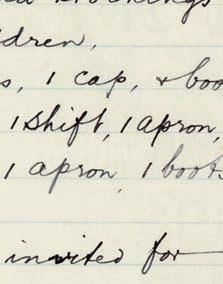 stockings
ldren,
s, 1 cap, & boo
1 shift, 1 apron,
1 apron, 1 boots
invited for